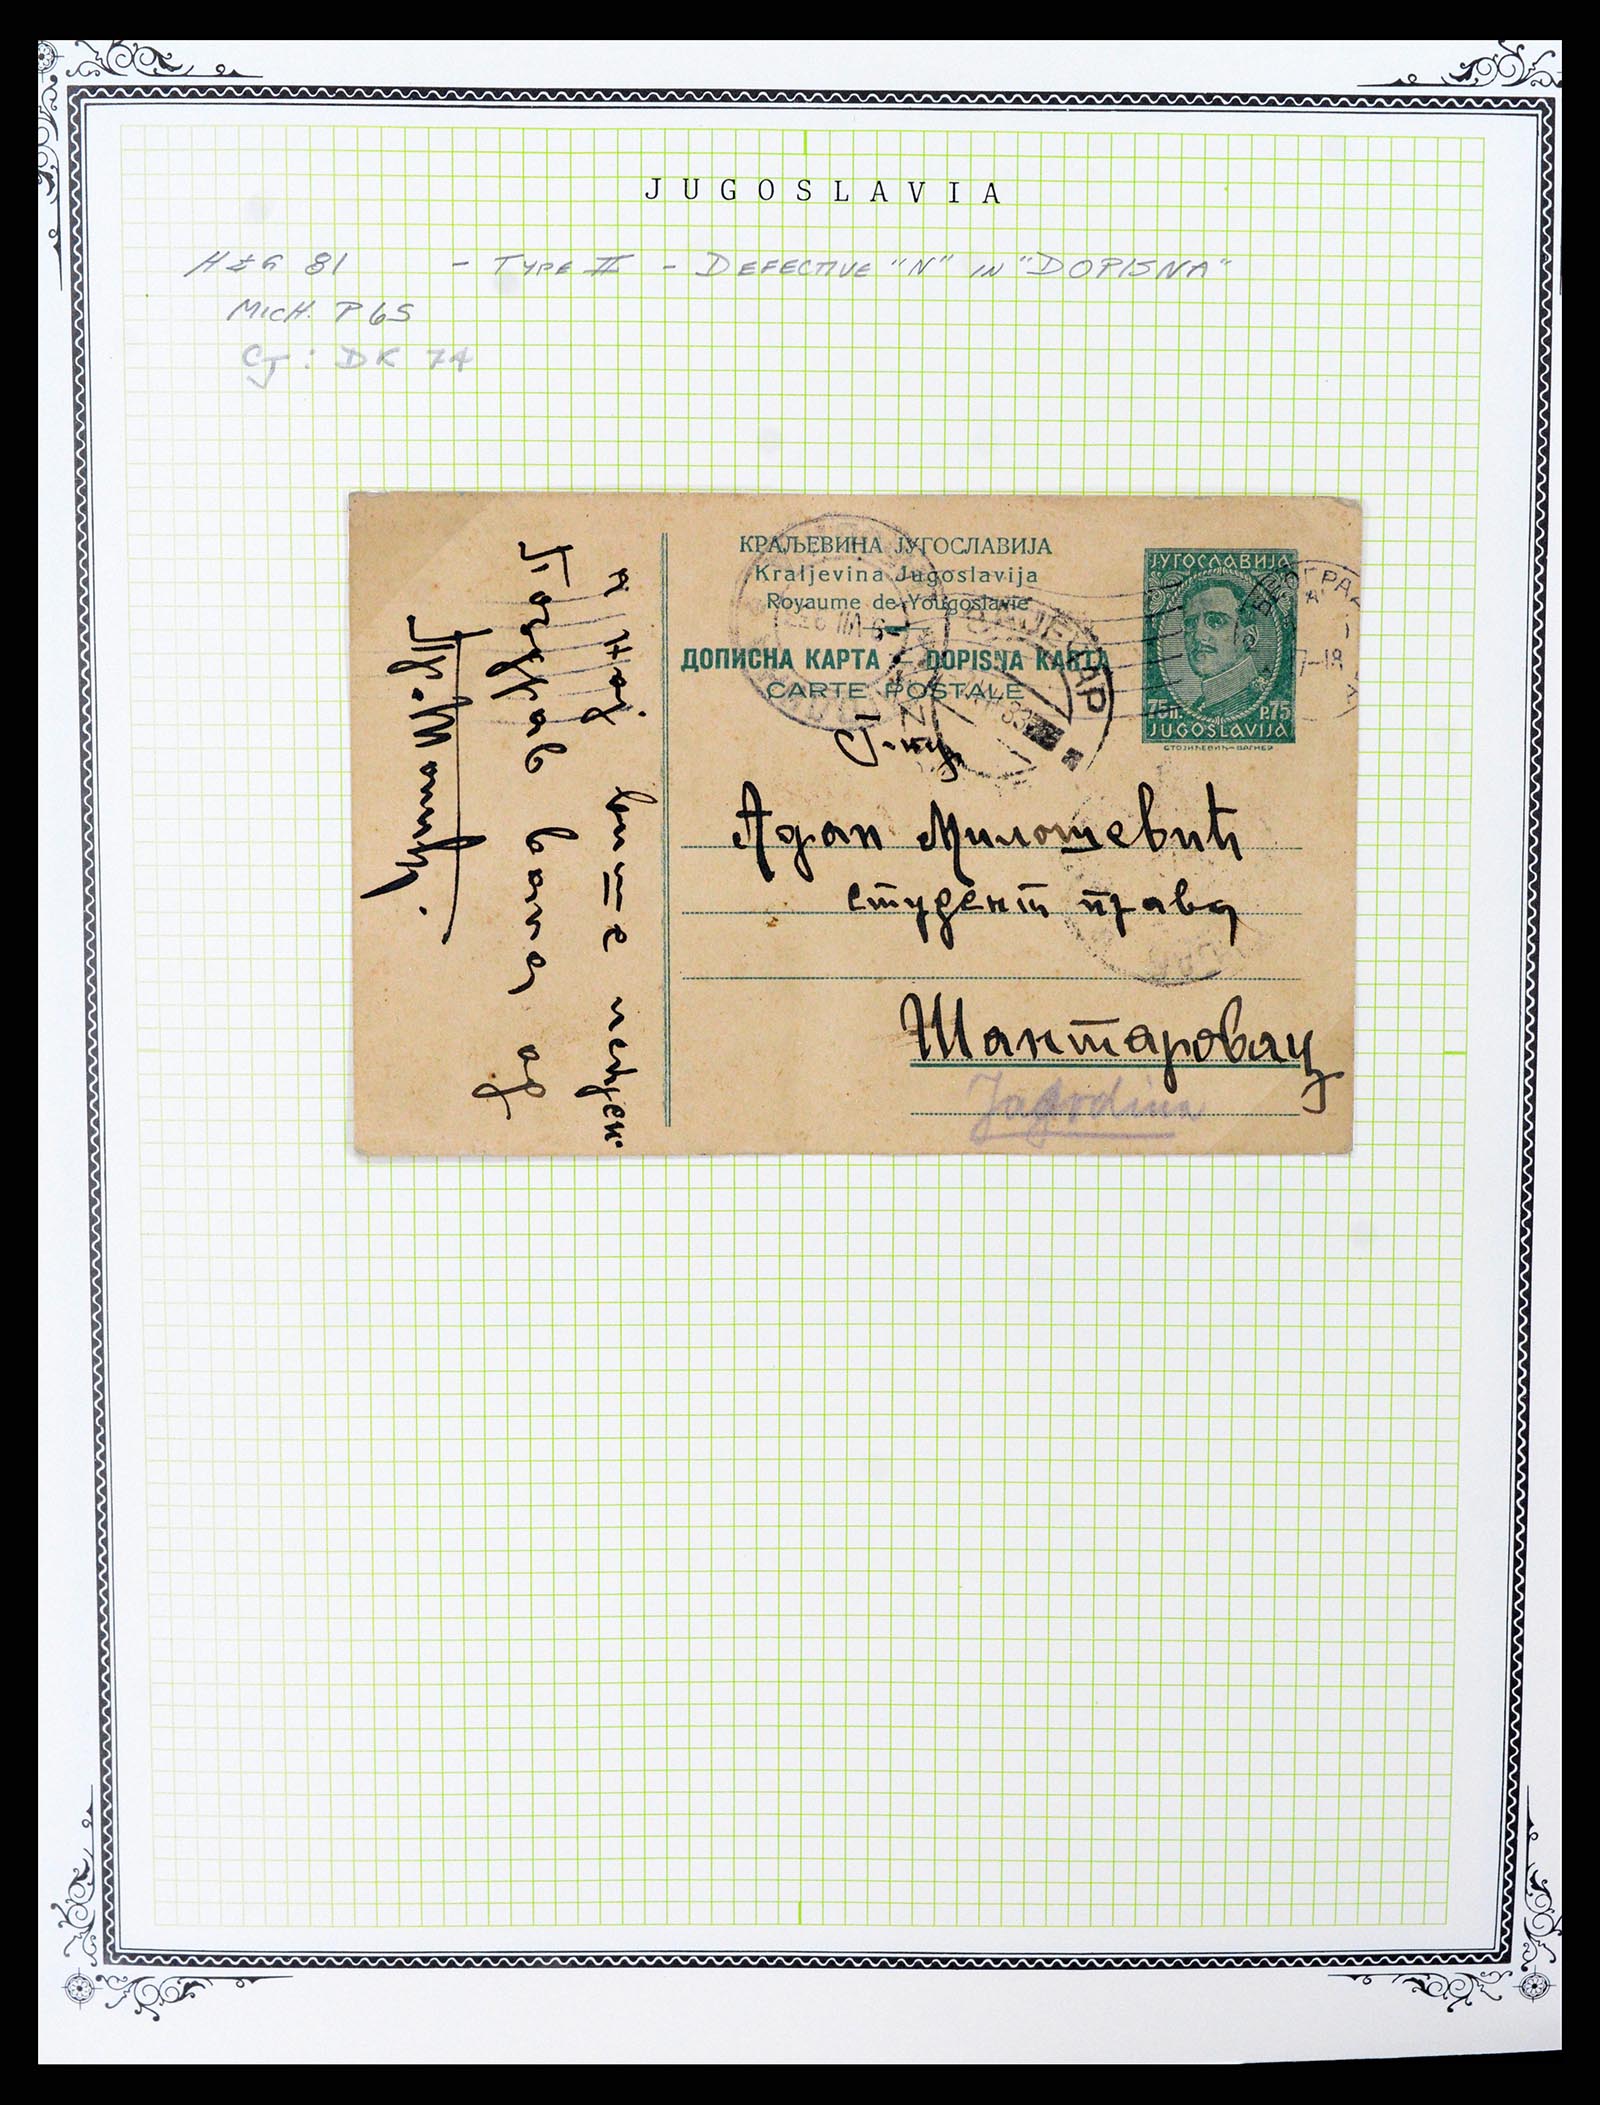 JUGOSLAVIA
H & G 81 - TYPE II - DEFECTIVE "N" IN "DOPISNA"
MICH. P 65
CJ: DK 74
КРАЉЕВИНА ЈУГОСЛАВИЈА
Kraljevina Jugoslavija
Royaume de Yougoslavie
ДОПИСНА КАРТА — DOPISNA KARTA
CARTE POSTALE
ЈУГОСЛАВИЈА
75п. P.75
JUGOSLAVIJA
СТОЈИЋЕВИЋ-ВАГНЕР
БЕОГРАД
17-18
ZAJEČAR
Г-ну
Адам Милошевић
студент права
Шантаровац
Jagodina
и нај више
Поздрав вама од